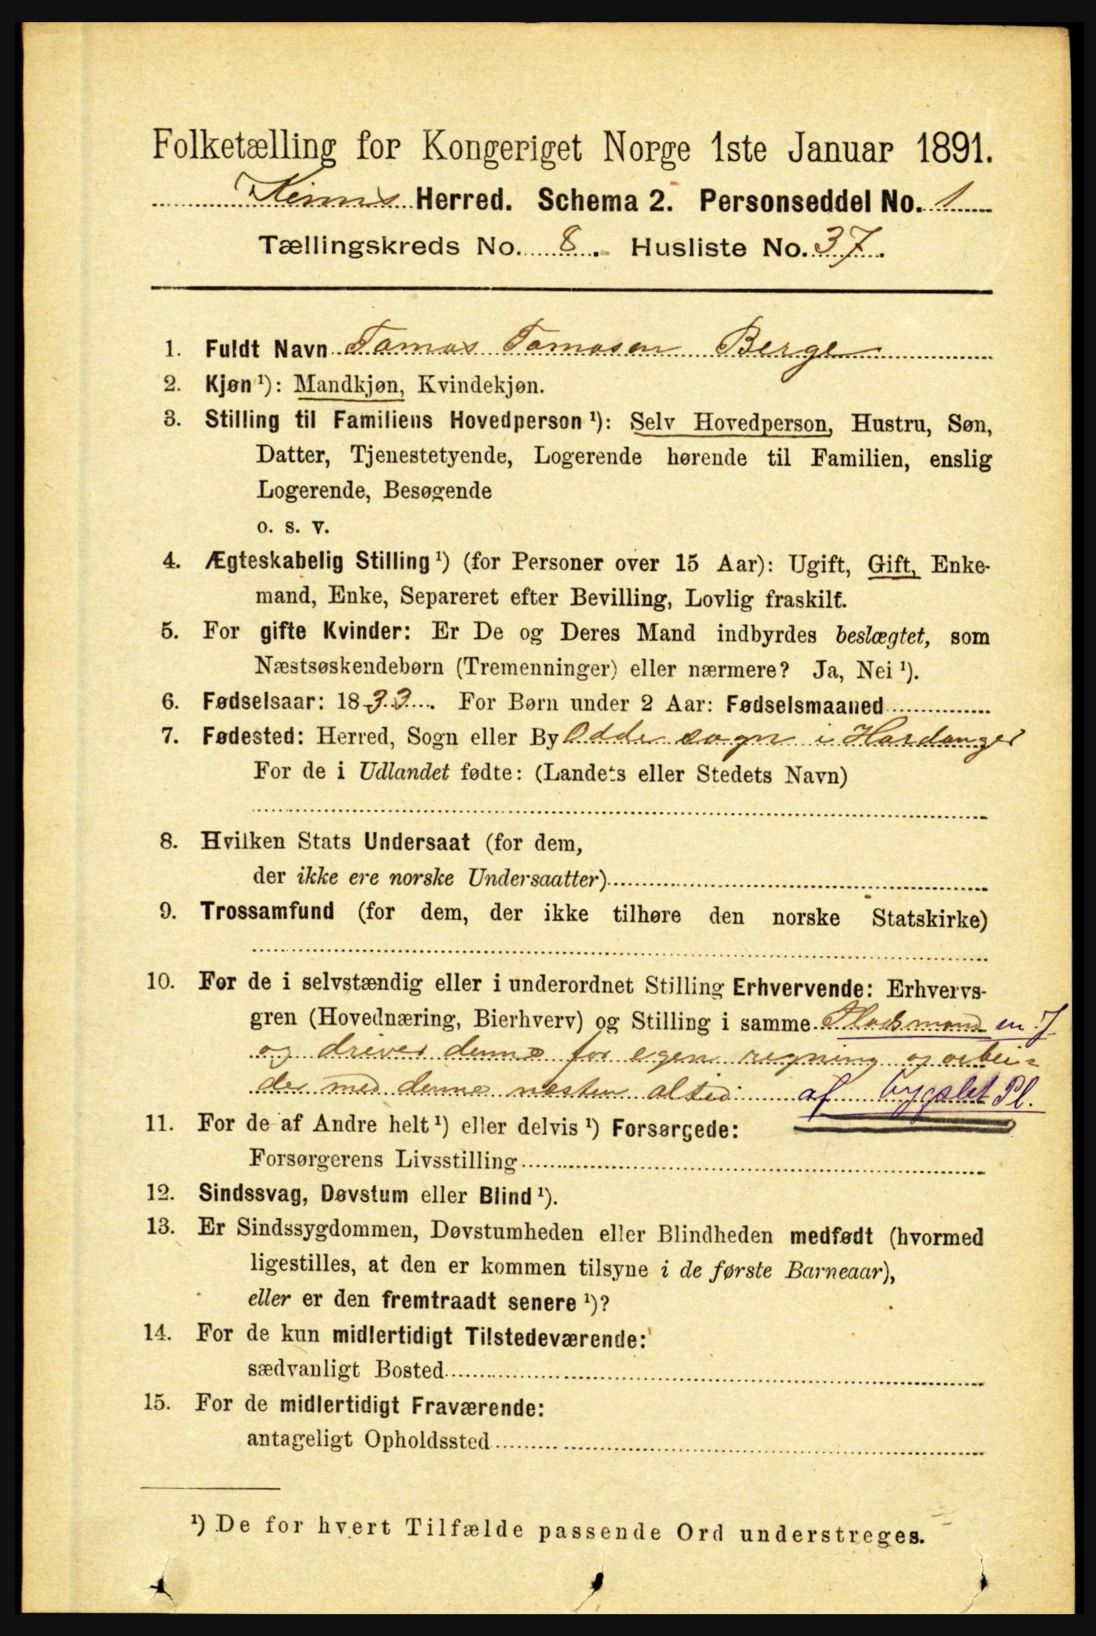 Folketælling for Kongeriget Norge 1ste Januar 1891.
Kinns Herred. Schema 2. Personseddel No. 1
Tællingskreds No. 8. Husliste No. 37.
1. Fuldt Navn Tomas Tomasen Berge
2. Kjøn ¹): Mandkjøn, Kvindekjøn.
3. Stilling til Familiens Hovedperson ¹): Selv Hovedperson, Hustru, Søn,
Datter, Tjenestetyende, Logerende hørende til Familien, enslig
Logerende, Besøgende
o. s. v.
4. Ægteskabelig Stilling ¹) (for Personer over 15 Aar): Ugift, Gift, Enke-
mand, Enke, Separeret efter Bevilling, Lovlig fraskilt.
5. For gifte Kvinder: Er De og Deres Mand indbyrdes beslægtet, som
Næstsøskendebørn (Tremenninger) eller nærmere? Ja, Nei ¹).
6. Fødselsaar: 1833. For Børn under 2 Aar: Fødselsmaaned
7. Fødested: Herred, Sogn eller By Odde sogn i Hardanger
For de i Udlandet fødte: (Landets eller Stedets Navn)
8. Hvilken Stats Undersaat (for dem,
der ikke ere norske Undersaatter)
9. Trossamfund (for dem, der ikke tilhøre den norske Statskirke)
10. For de i selvstændig eller i underordnet Stilling Erhvervende: Erhvervs-
gren (Hovednæring, Bierhverv) og Stilling i samme Pladsmand en J
og driver denne for egen regning og arbei-
der med denne næsten altid af bygslet Pl.
11. For de af Andre helt ¹) eller delvis ¹) Forsørgede:
Forsørgerens Livsstilling
12. Sindssvag, Døvstum eller Blind ¹).
13. Er Sindssygdommen, Døvstumheden eller Blindheden medfødt (hvormed
ligestilles, at den er kommen tilsyne i de første Barneaar),
eller er den fremtraadt senere ¹)?
14. For de kun midlertidigt Tilstedeværende:
sædvanligt Bosted
15. For de midlertidigt Fraværende:
antageligt Opholdssted
¹) De for hvert Tilfælde passende Ord understreges.